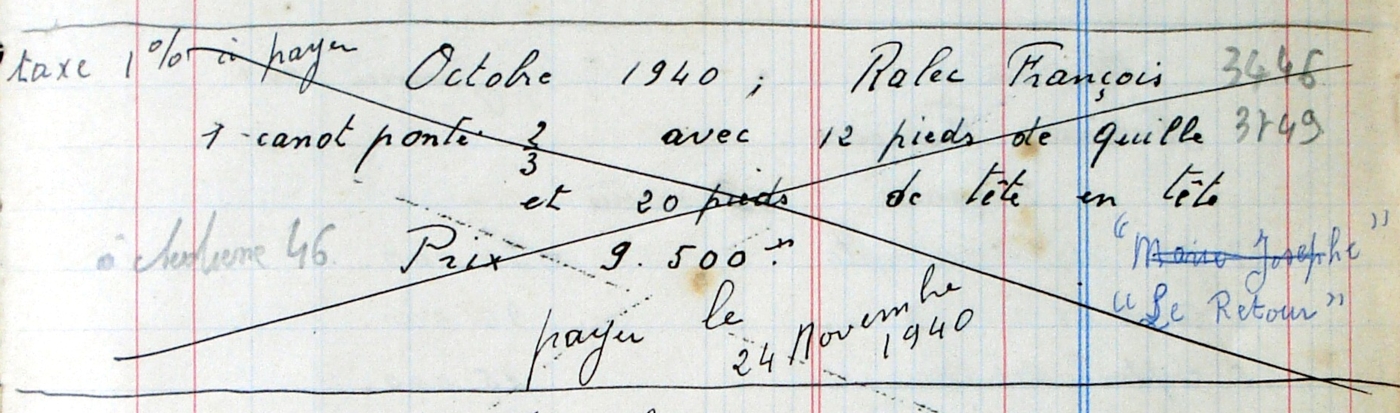 taxe 1% à payer Octobre 1940 ; Ralec François 3446
1 canot ponté 2/3 avec 12 pieds de quille 3749
et 20 pieds de tête en tête
Prix 9.500 Frs 46 "Marie Josephe"
"Le Retour"
payer le 24 Novembre 1940